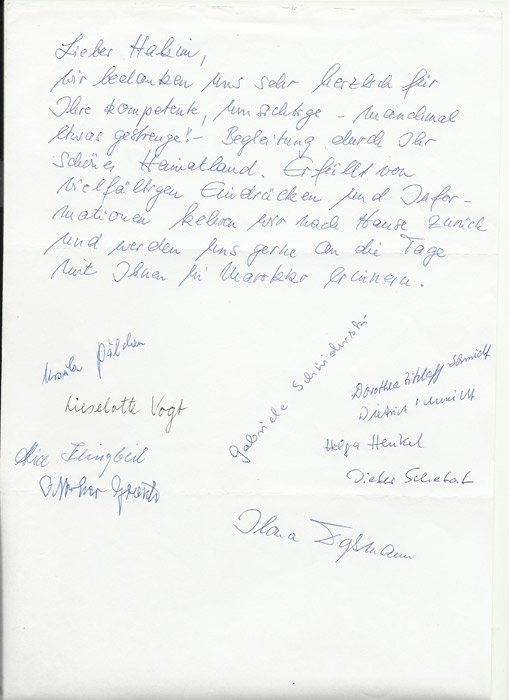 Lieber Hakim,
wir bedanken uns sehr herzlich für
Ihre kompetente, umsichtige - manchmal
etwas gestrenge!- Begleitung durch Ihr
schönes Heimatland. Erfüllt von
vielfältigen Eindrücken und Infor-
mationen kehren wir nach Hause zurück
und werden uns gerne an die Tage
mit Ihnen in Marokko erinnern.
Gabriele
Ursula
Dorothea Schmidt
Dietrich Schmidt
Lieselotte Vogt
Helga Henkel
Alice Klingbeil
Dieter
Ilona